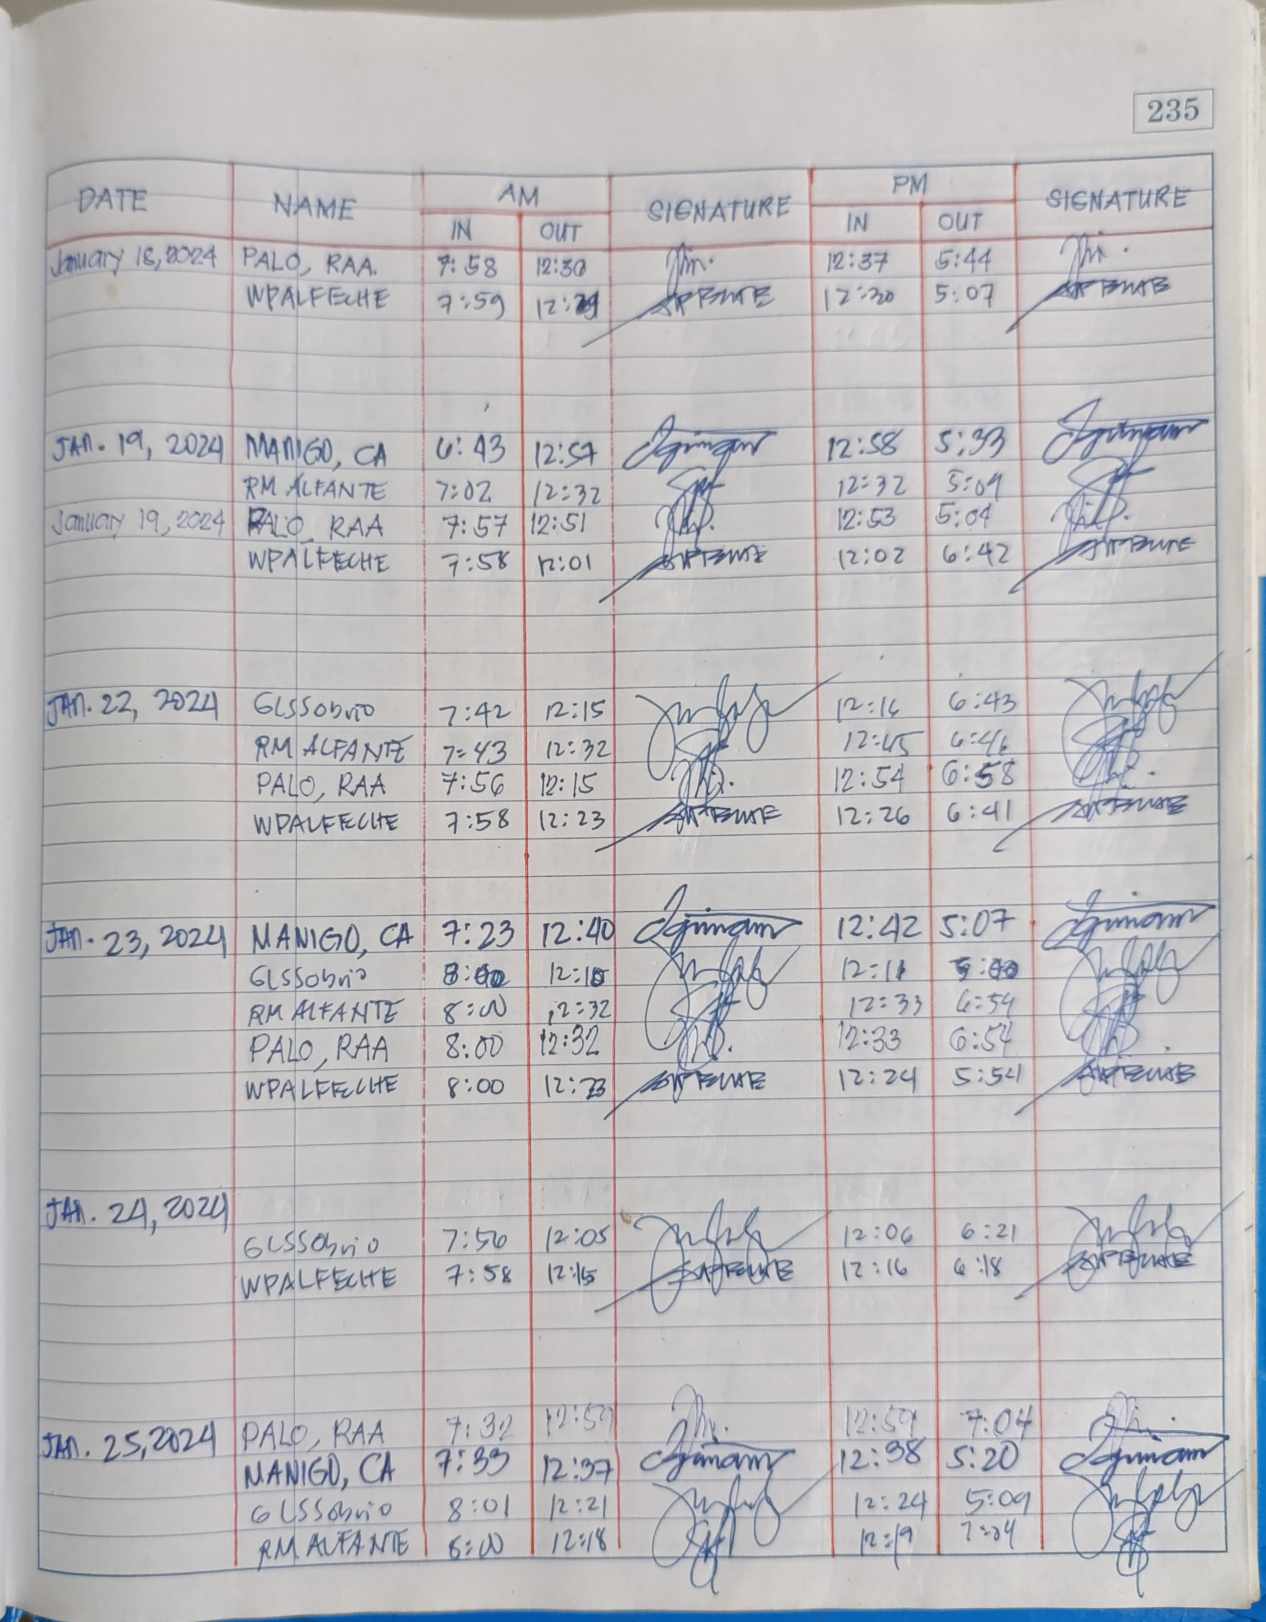 235
DATE NAME AM SIGNATURE PM SIGNATURE
IN OUT IN OUT
January 18, 2024 PALO, RAA. 7:58 12:30 12:37 5:44
WPALFECHE 7:59 12:29 12:30 5:07
JAN. 19, 2024 MANIGO, CA 6:43 12:57 12:58 5:33
RM ALFANTE 7:02 12:32 12:32 5:09
January 19, 2024 PALO, RAA 7:57 12:51 12:53 5:04
WPALFECHE 7:58 12:01 12:02 6:42
JAN. 22, 2024 GLSSobrio 7:42 12:15 12:16 6:43
RM ALFANTE 7:43 12:32 12:45 6:46
PALO, RAA 7:56 12:15 12:54 6:58
WPALFECHE 7:58 12:23 12:26 6:41
JAN. 23, 2024 MANIGO, CA 7:23 12:40 12:42 5:07
GLSSobrio 12:10 12:11
RM ALFANTE 8:00 12:32 12:33 6:54
PALO, RAA 8:00 12:32 12:33 6:54
WPALFECHE 8:00 12:23 12:24 5:54
JAN. 24, 2024
GLSSobrio 7:56 12:05 12:06 6:21
WPALFECHE 7:58 12:15 12:16 6:18
JAN. 25, 2024 PALO, RAA 7:32 12:59 12:59 7:04
MANIGO, CA 7:33 12:37 12:38 5:20
GLSSobrio 8:01 12:21 12:24 5:09
RM ALFANTE 8:00 12:18 12:19 7:04